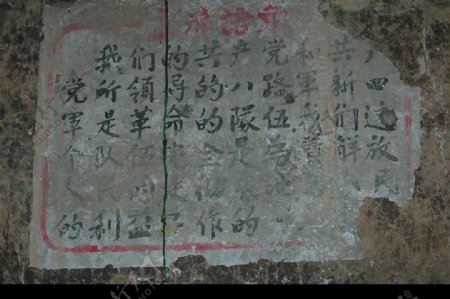 我们的共产党和共产
党所领导的八路军新四
军是革命的隊伍我们这
个队伍完全是为着解放
人民的是彻地民
的利益作的